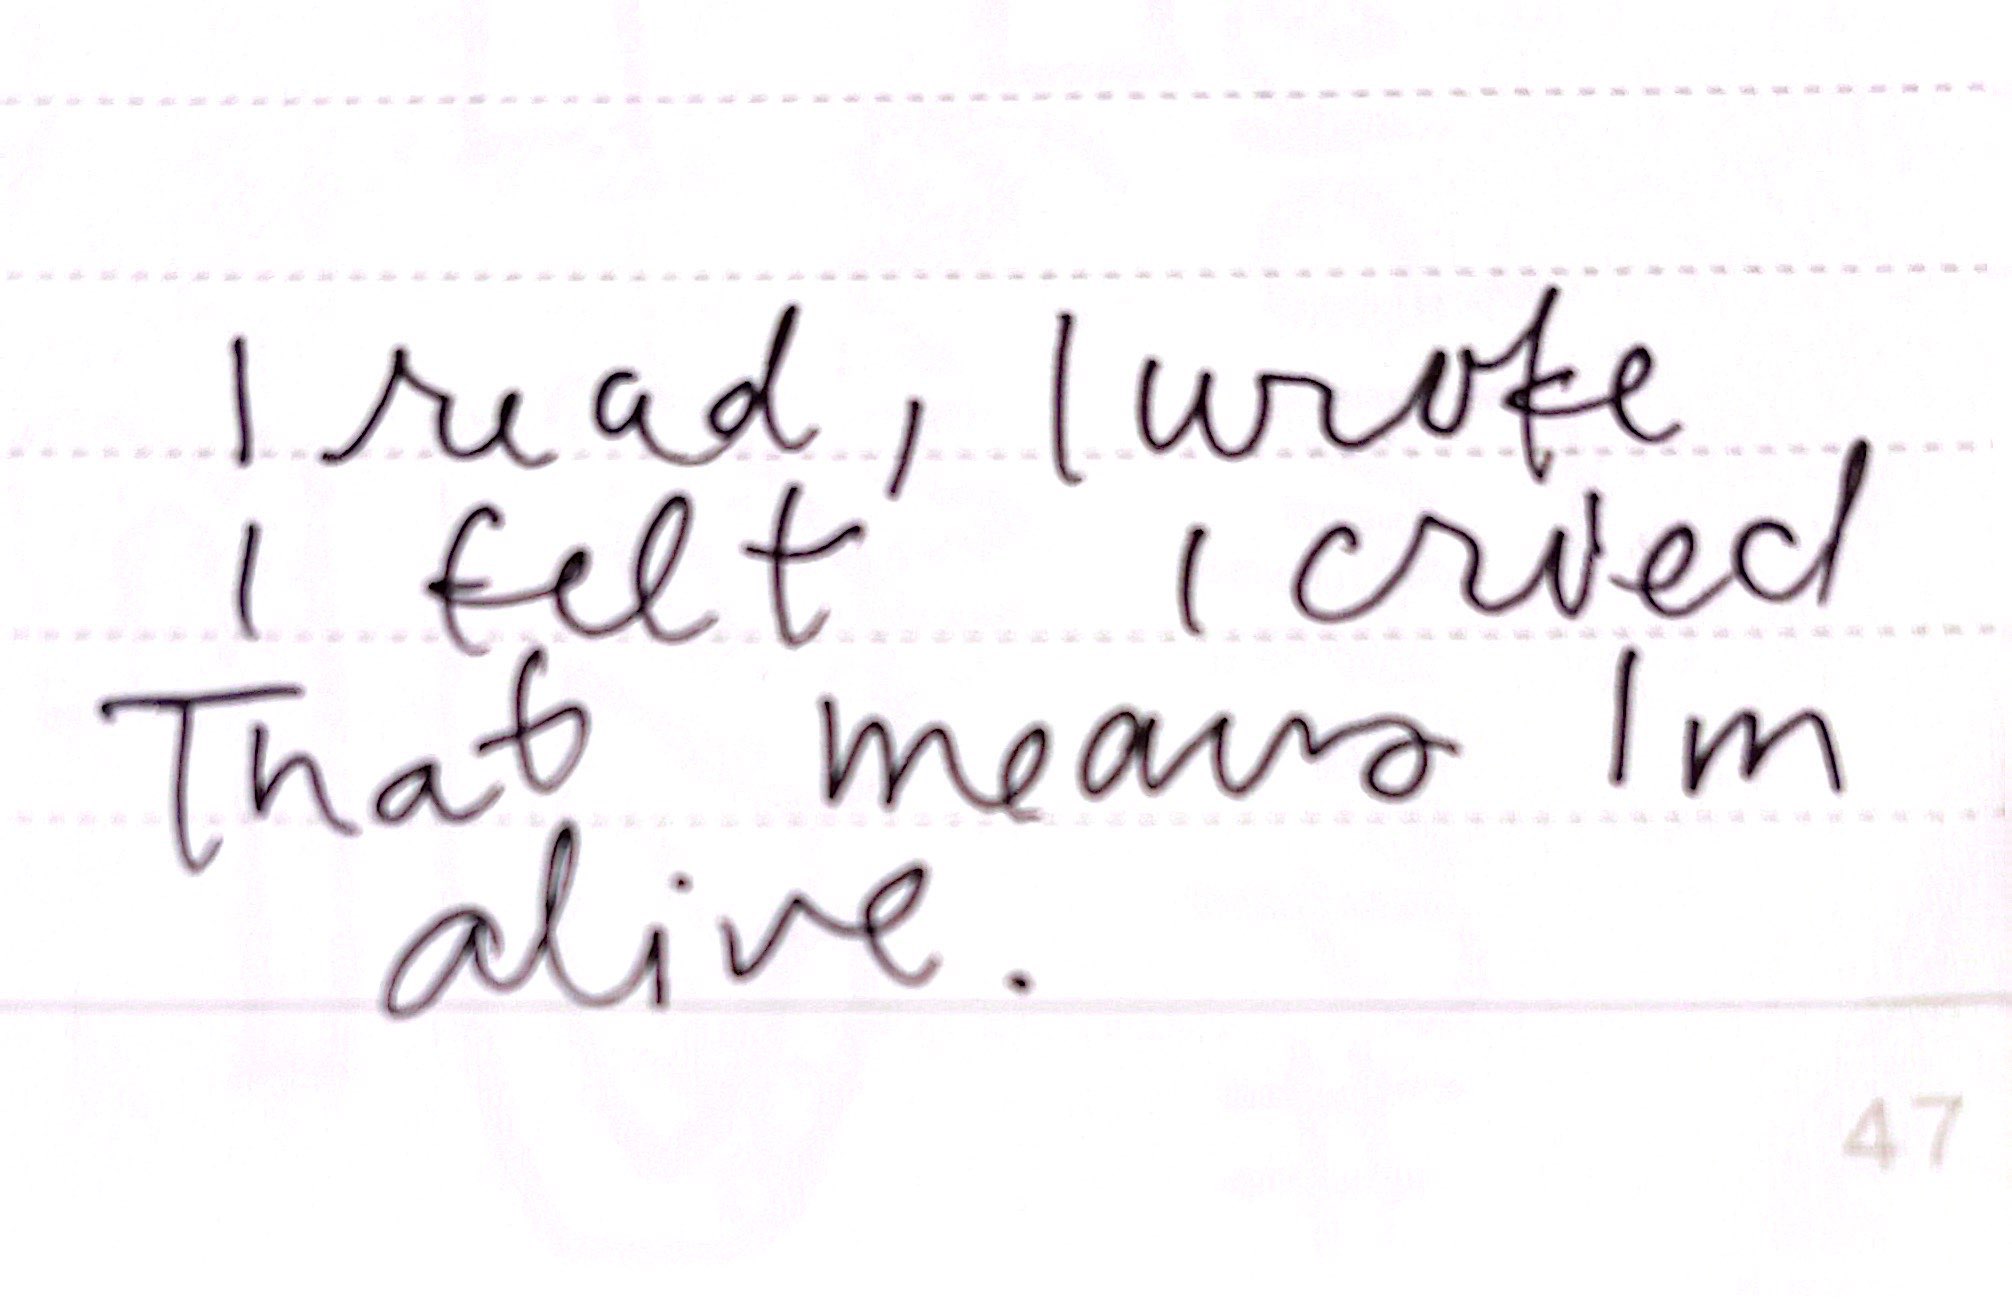 I read, I wrote
I felt I cried
That means Im
alive.
47